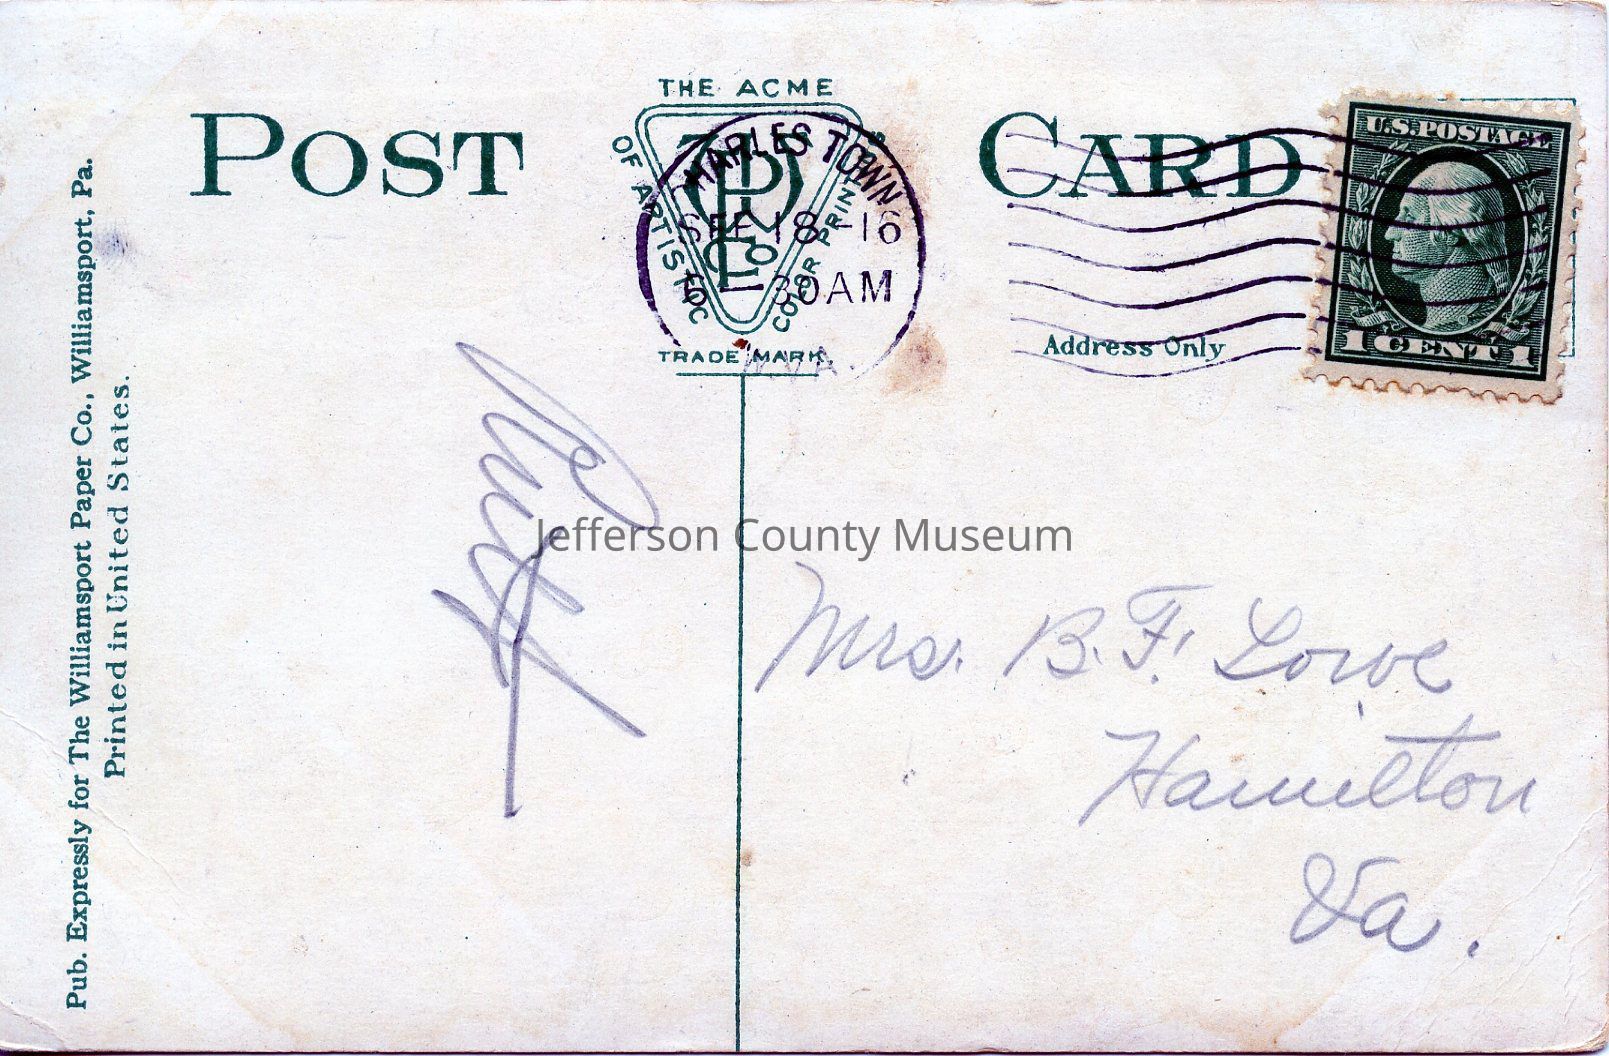 THE ACME
POST CARD
OF ARTISTIC COLOR PRINT
TRADE MARK
CHARLES TOWN
SEP 18 -16
5 30AM
W.VA.
U.S. POSTAGE
1 CENT 1
Address Only
Pub. Expressly for The Williamsport Paper Co., Williamsport, Pa.
Printed in United States.
Ruth
Jefferson County Museum
Mrs. B. F. Lowe
Hamilton
Va.